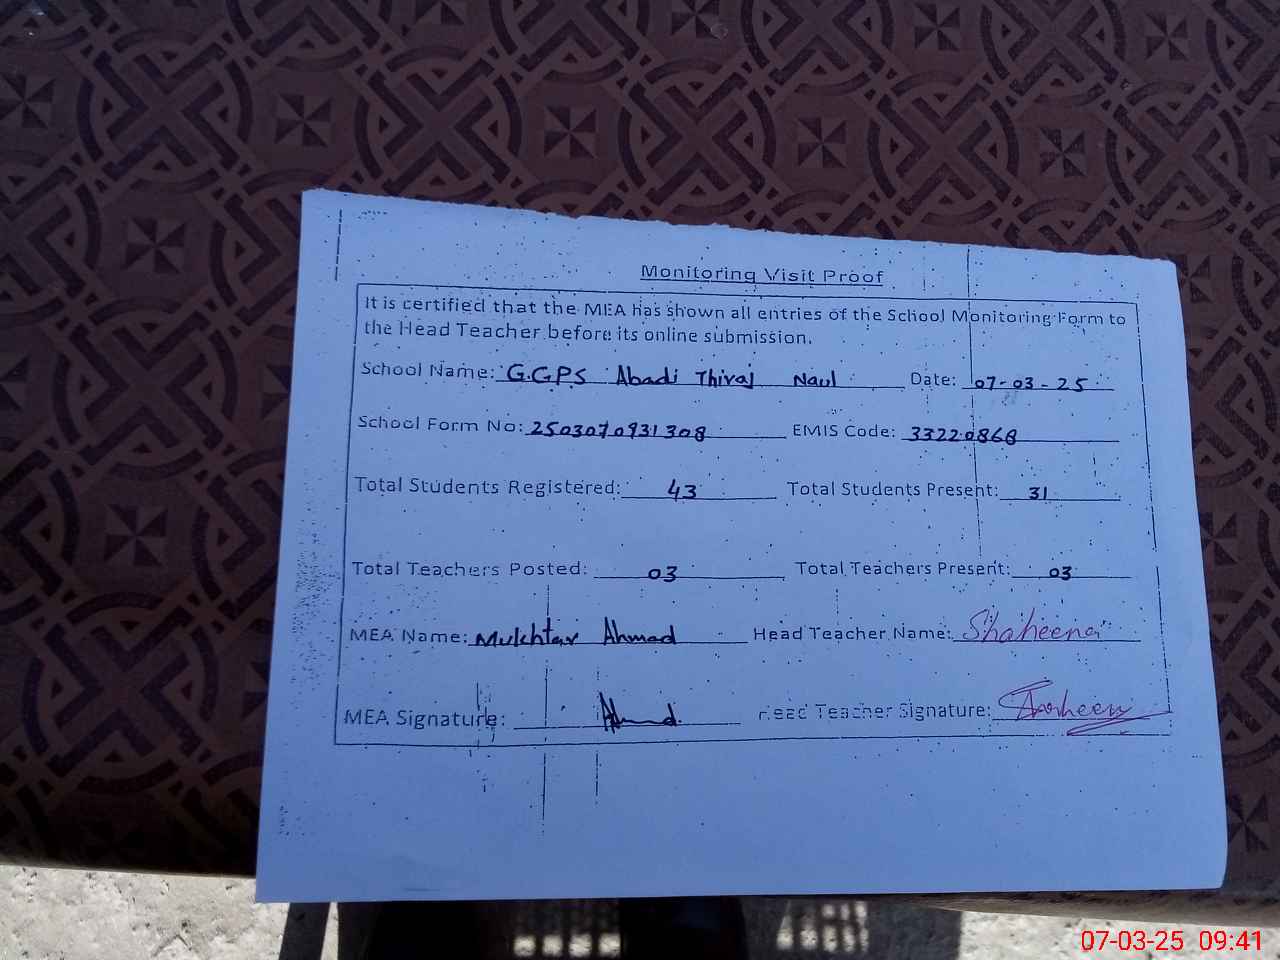 Monitoring Visit Proof
It is certified that the MEA has shown all entries of the School Monitoring Form to
the Head Teacher before its online submission.
School Name: G.GPS Abadi Thiraj Naul Date: 07-03-25
School Form No: 2503070931308 EMIS Code: 33220868
Total Students Registered: 43 Total Students Present: 31
Total Teachers Posted: 03 Total Teachers Present: 03
MEA Name: Mukhtar Ahmad Head Teacher Name: Shaheena
MEA Signature: Ahmad Head Teacher Signature:
07-03-25 09:41